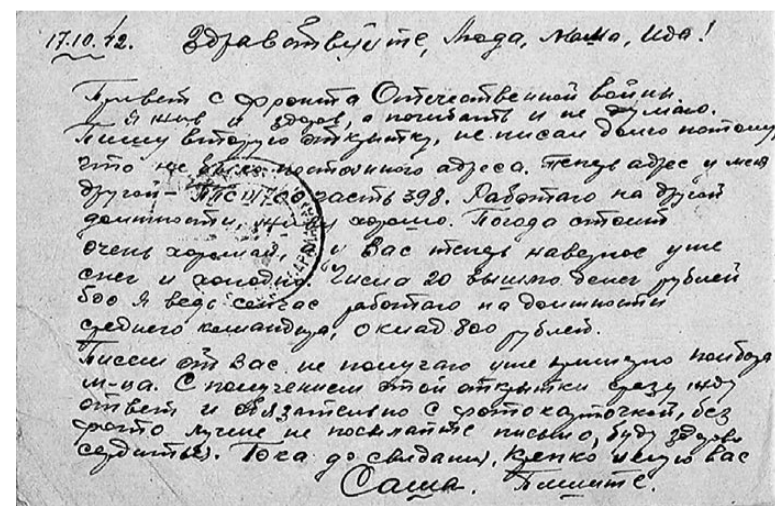 17.10.42. Здравствуйте, Люда, мама, Ида!
Привет с фронта Отечественной войны.
Я жив и здоров, а погибать и не думаю.
Пишу вторую открытку, не писал долго потому,
что не было постоянного адреса. Теперь адрес у меня
другой - часть 398. Работаю на другой
должности, живу хорошо. Погода стоит
очень хорошая, у Вас теперь наверное уже
снег и холодно. Числа 20 вышлю денег рублей
500 я ведь сейчас работаю на должности
среднего командира, оклад 800 рублей.
Писем от Вас не получаю уже
м-ца. С получением этой открытки сразу жду
ответ и обязательно с фотокарточкой, без
фото лучше не посылайте письмо, буду здорово
сердиться. Пока до свидания, крепко целую Вас
Саша. Пишите.